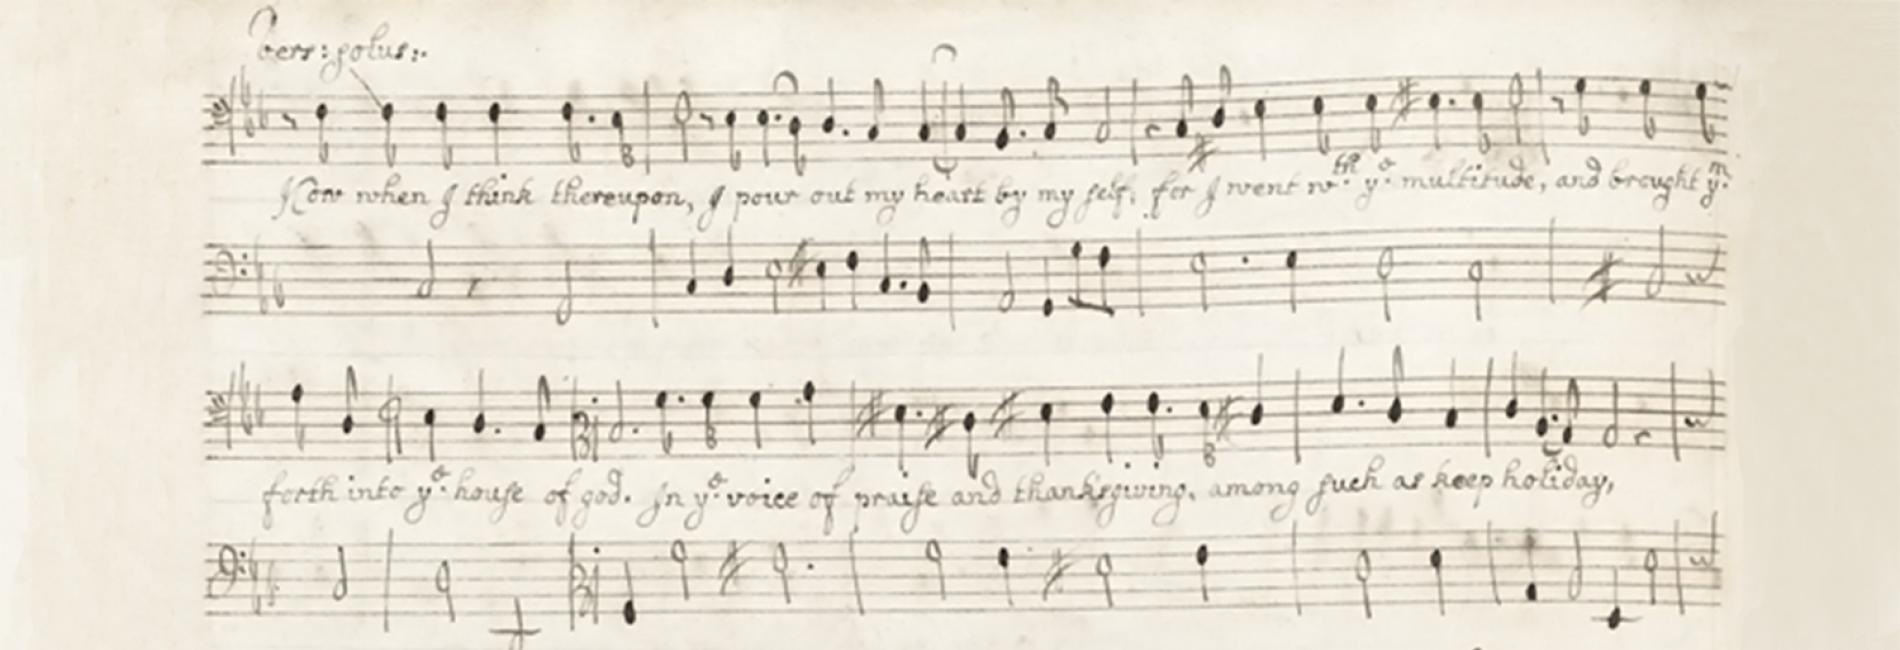 Vers: solus:
Now when I think thereupon, I pour out my heart by my self, for I went wth. ye. multitude, and brought ym.
forth into ye. house of god. In ye. voice of praise and thanksgiving. among such as keep holiday,